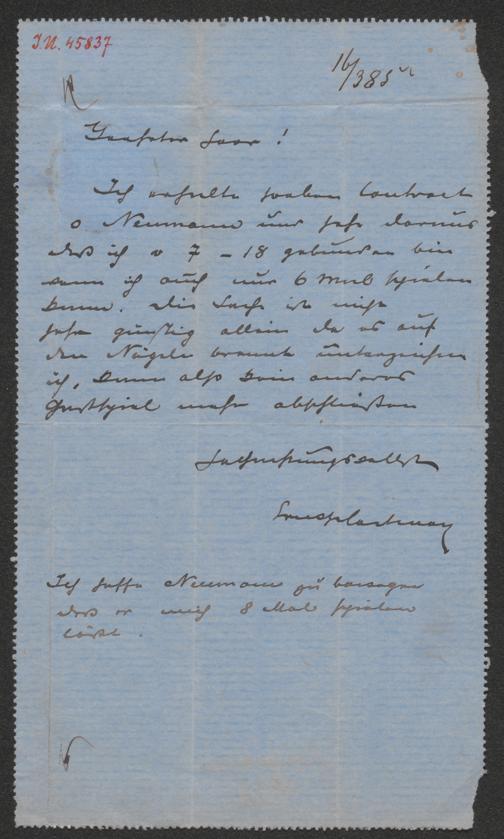 I.N. 45837
16/3 85
Geehrter Herr!
Ich erhielte soeben Contract
v Neumann und sehe daraus
daß ich v 7 – 18 gebunden bin
wenn ich auch nur 6 Mal spielen
kann. Die Sache ist nicht
sehr günstig allein da es auf
den Nägeln brennt unterzeichne
ich, kann also kein anderes
Gastspiel mehr abschließen
Hochachtungsvollst
Ich hoffe Neumann zu bewegen
daß er mich 8 Mal spielen
läßt.